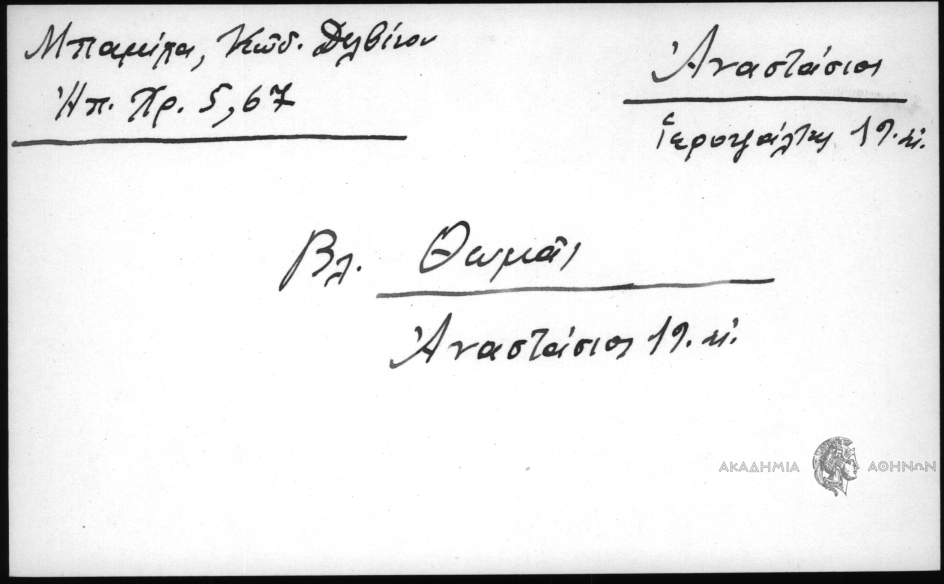 Μπαμίχα, Κώδ. Δελβίνου
Ἠπ. Χρ. 5, 67
Ἀναστάσιος
Ἱεροψάλτης 19. αἰ.
Βλ. Θωμᾶς
Ἀναστάσιος 19. αἰ.
ΑΚΑΔΗΜΙΑ ΑΘΗΝΩΝ